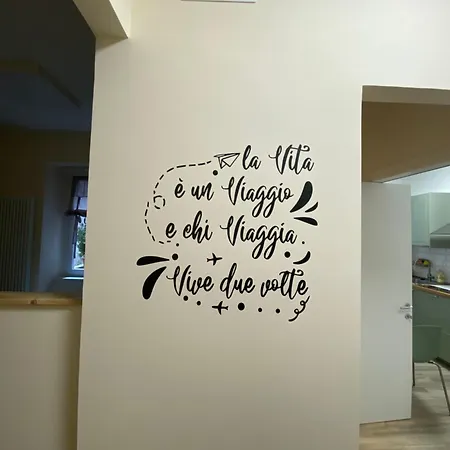 la Vita
è un Viaggio
e chi Viaggia
Vive due volte